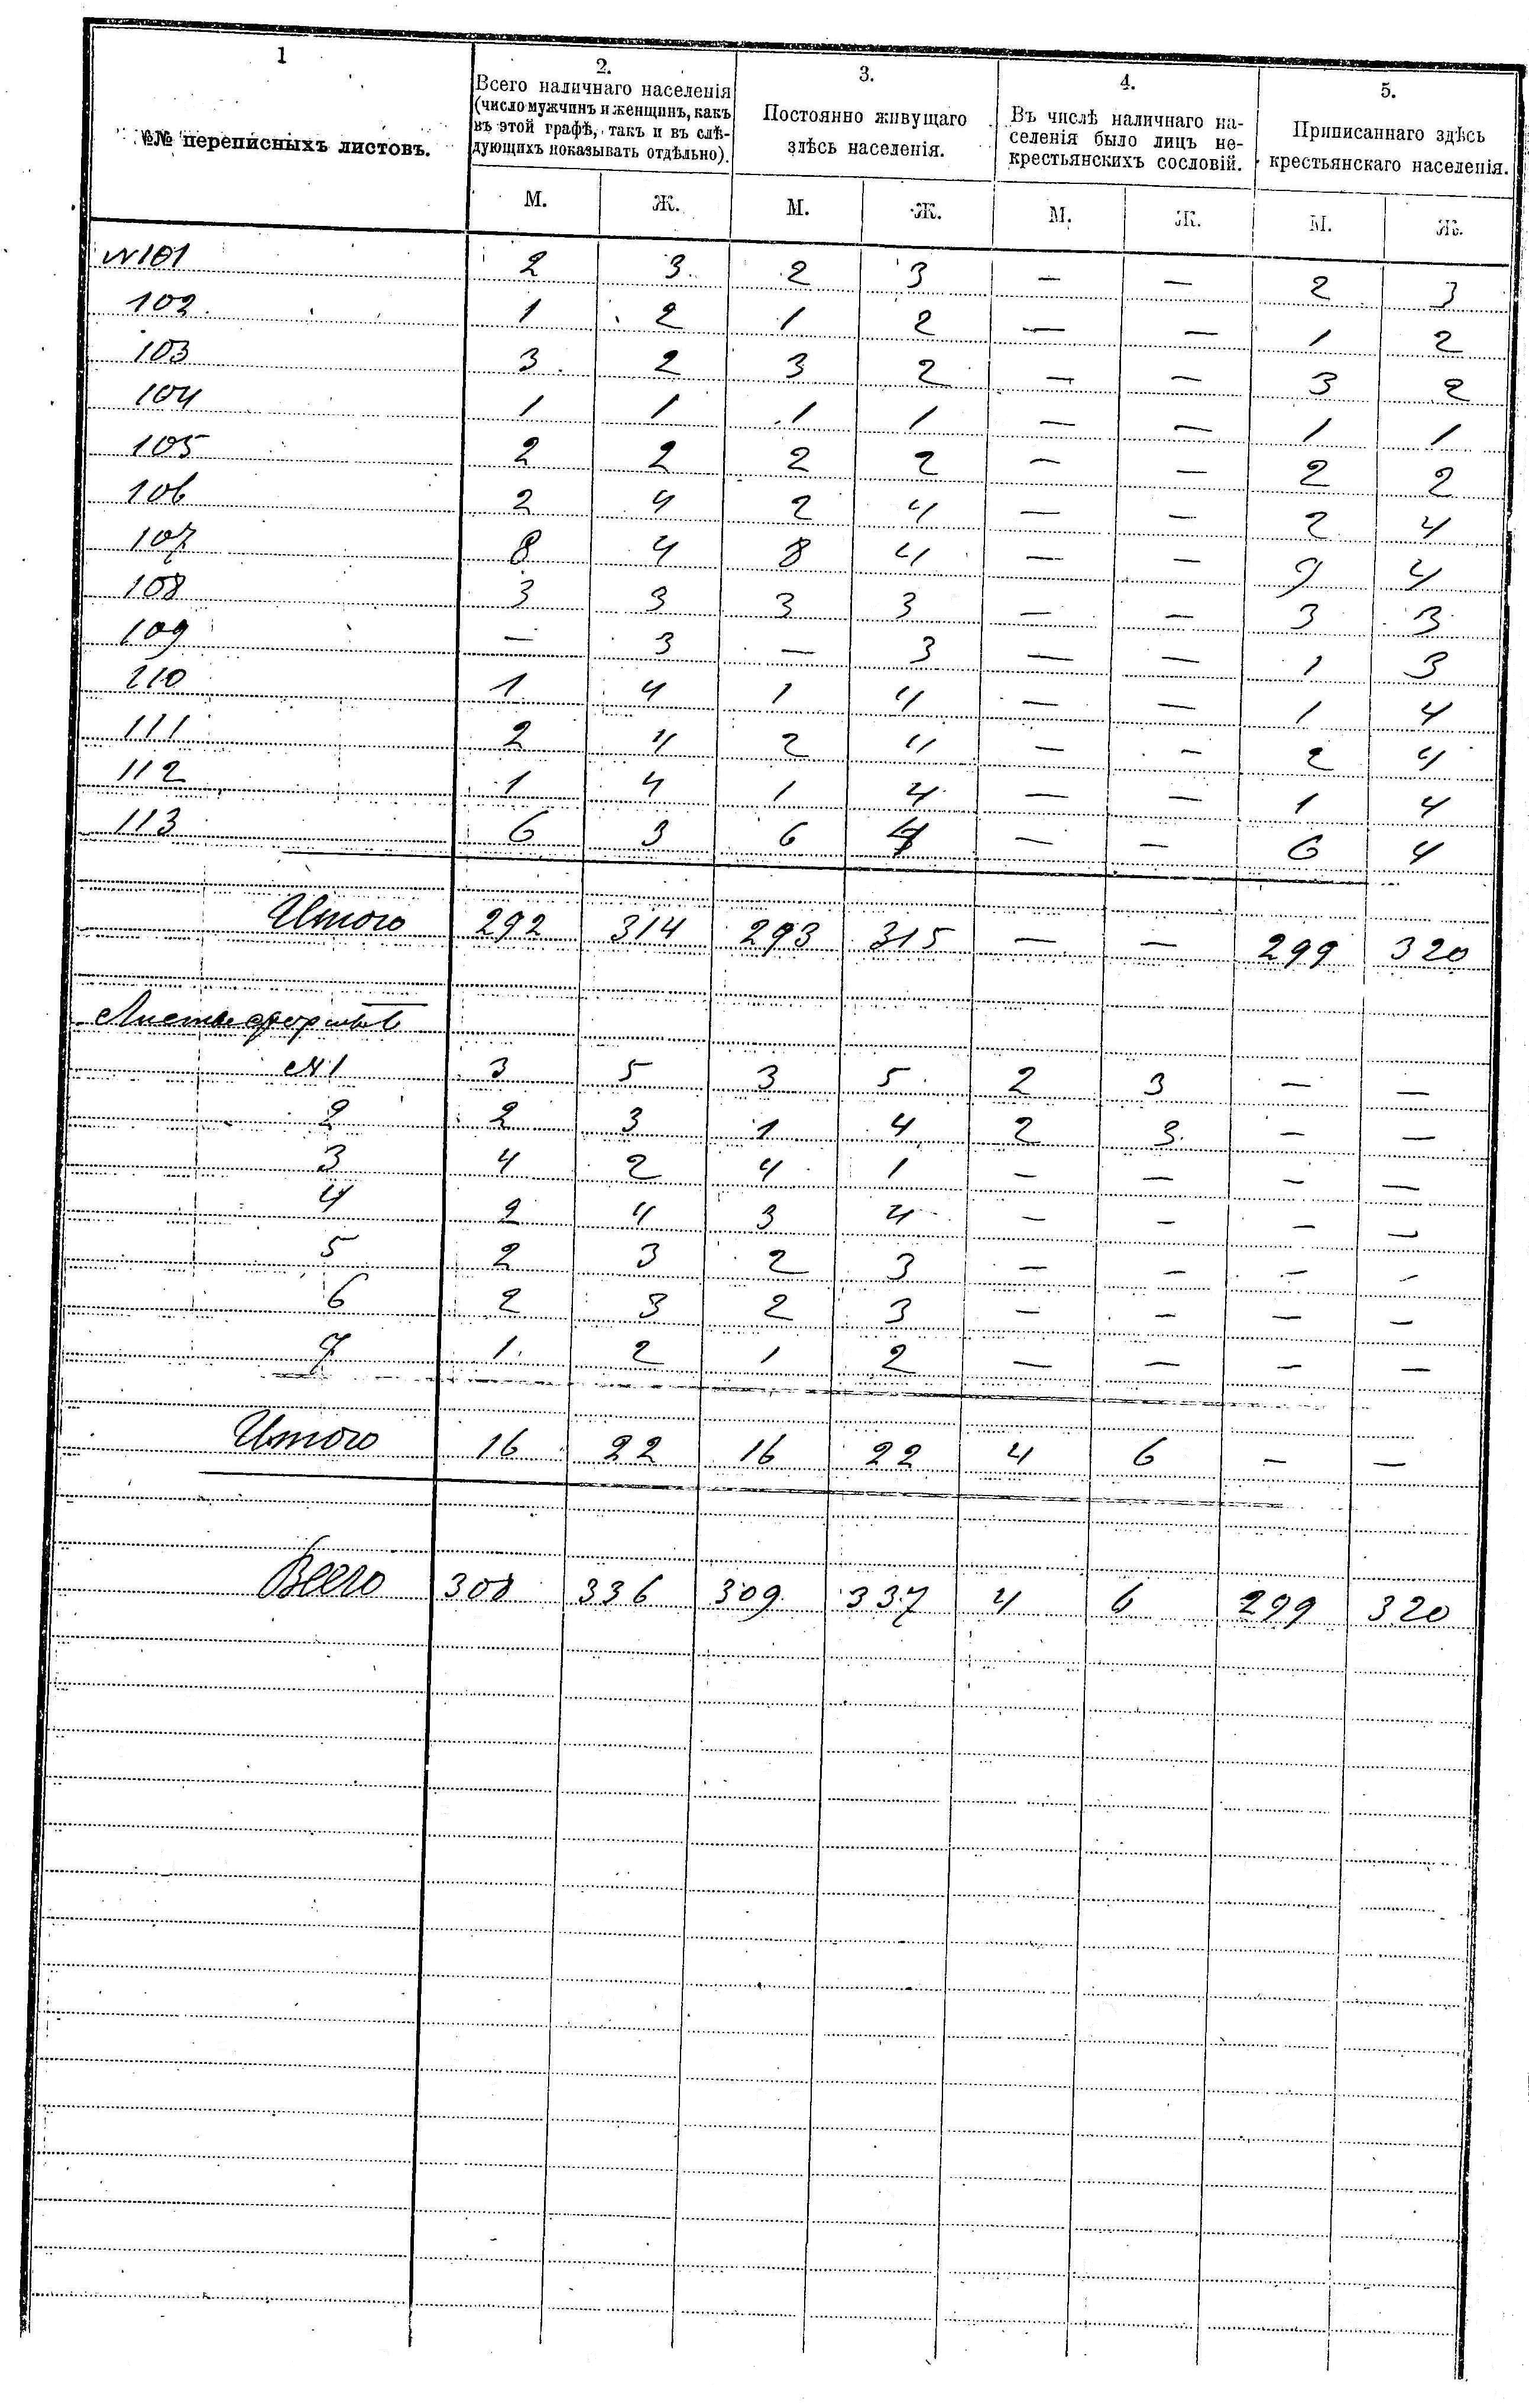 1
2.
3.
4.
5.
№№ переписныхъ листовъ.
Всего наличнаго населенія
(число мужчинъ и женщинъ, какъ
въ этой графѣ, такъ и въ слѣ-
дующихъ показывать отдѣльно).
Постоянно живущаго
здѣсь населенія.
Въ числѣ наличнаго на-
селенія было лицъ не-
крестьянскихъ сословій.
Приписаннаго здѣсь
крестьянскаго населенія.
М. Ж. М. Ж. М. Ж. М. Ж.
№101 2 3 2 3 — — 2 3
102 1 2 1 2 — — 1 2
103 3 2 3 2 — — 3 2
104 1 1 1 1 — — 1 1
105 2 2 2 2 — — 2 2
106 2 4 2 4 — — 2 4
107 8 4 8 4 — — 9 4
108 3 3 3 3 — — 3 3
109 — 3 — 3 — — 1 3
110 1 4 1 4 — — 1 4
111 2 4 2 4 — — 2 4
112 1 4 1 4 — — 1 4
113 6 3 6 4 — — 6 4
Итого 292 314 293 315 — — 299 320
Листы формы
№1 3 5 3 5 2 3 — —
2 2 3 1 4 2 3 — —
3 4 2 4 1 — — — —
4 2 4 3 4 — — — —
5 2 3 2 3 — — — —
6 2 3 2 3 — — — —
7 1 2 1 2 — — — —
Итого 16 22 16 22 4 6 — —
Всего 308 336 309 337 4 6 299 320